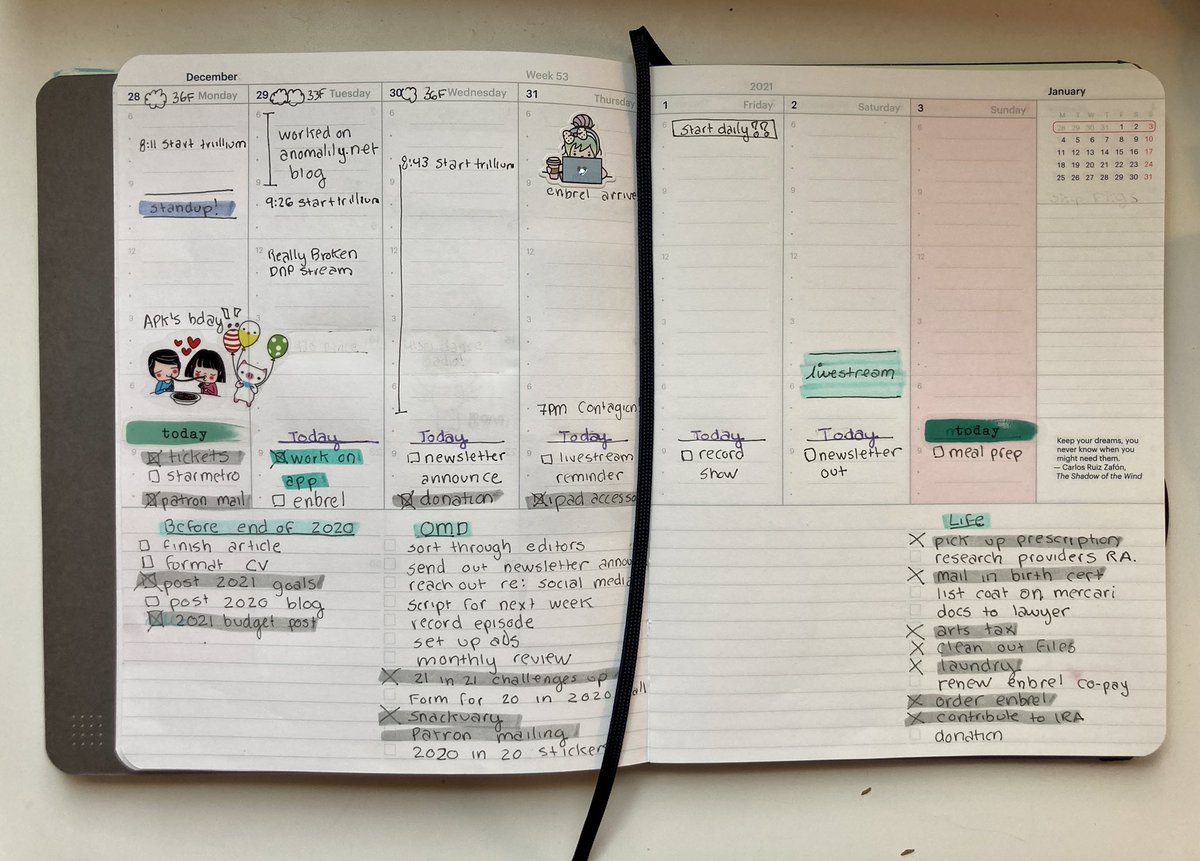 December
Week 53
28 36F Monday
8:11 start trillium
standup!
APK's bday!!
today
tickets
starmetro
patron mail
29 33F Tuesday
worked on
anomalily.net
blog
9:26 start trillium
Really Broken
DNP stream
Today
work on
app
enbrel
30 36F Wednesday
8:43 start trillium
Today
newsletter
announce
donation
31 Thursday
enbrel arrive
7PM Contagion
Today
livestream
reminder
ipad access
Before end of 2020
finish article
format CV
post 2021 goals
post 2020 blog
2021 budget post
OMD
sort through editors
send out newsletter annou
reach out re: social media
script for next week
record episode
set up ads
monthly review
21 in 21 challenges up
Form for 20 in 2020
Snackuary
Patron mailing
2020 in 20 stickers
2021
January
1 Friday
start daily!!
Today
record
show
2 Saturday
livestream
Today
newsletter
out
3 Sunday
today
meal prep
M T W T F S S
28 29 30 31 1 2 3
4 5 6 7 8 9 10
11 12 13 14 15 16 17
18 19 20 21 22 23 24
25 26 27 28 29 30 31
Keep your dreams, you
never know when you
might need them.
— Carlos Ruiz Zafón,
The Shadow of the Wind
Life
pick up prescription
research providers RA.
mail in birth cert
list coat on mercari
docs to lawyer
arts tax
clean out files
laundry
renew enbrel co-pay
order enbrel
contribute to IRA
donation